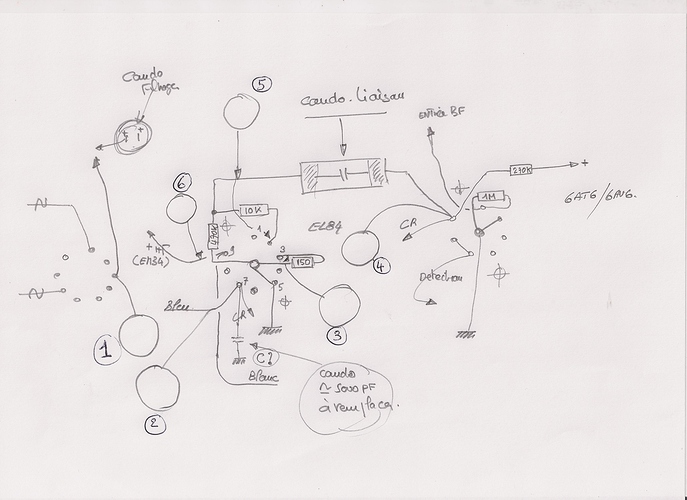 Cando
filtrage
5
Cando. liaison
ENTRÉE BF
+
6
10K
EL84
270K
1M
6AT6/6AV6.
470K
1
9
3
150
CR
4
+HT
(EL84)
Détection
7
5
Bleu
CR
3
1
C?
Blanc
Cando
à remplacer.
2